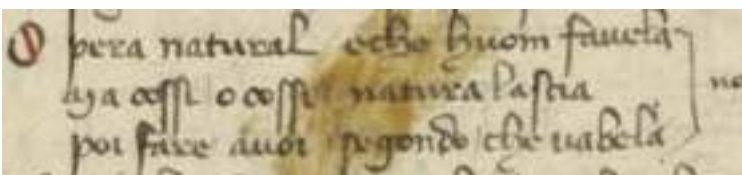 Opera natural eche huom fauella
Ma cossi o cossi natura lascia
poi fare auoi segondo che uabella